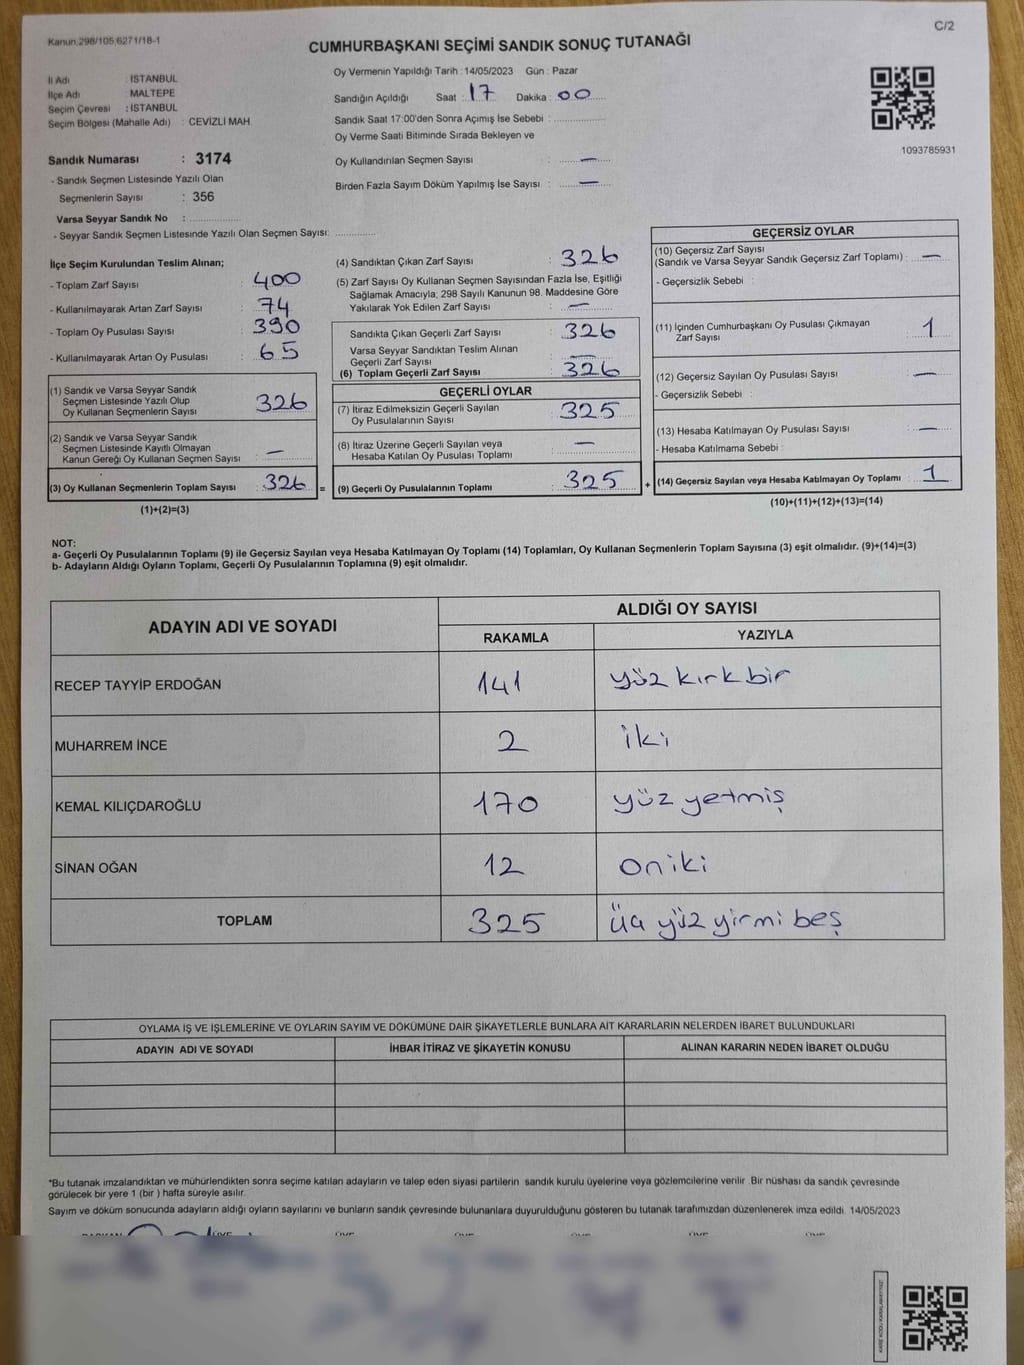 Kanun:298/105,6271/18-1
C/2
CUMHURBAŞKANI SEÇİMİ SANDIK SONUÇ TUTANAĞI
İl Adı : İSTANBUL
İlçe Adı : MALTEPE
Seçim Çevresi : İSTANBUL
Seçim Bölgesi (Mahalle Adı) : CEVİZLİ MAH.
Oy Vermenin Yapıldığı Tarih : 14/05/2023 Gün : Pazar
Sandığın Açıldığı Saat : 17 Dakika : 00
Sandık Saat 17:00'den Sonra Açımış İse Sebebi :
Oy Verme Saati Bitiminde Sırada Bekleyen ve
Oy Kullandırılan Seçmen Sayısı : —
Birden Fazla Sayım Döküm Yapılmış İse Sayısı : —
1093785931
Sandık Numarası : 3174
- Sandık Seçmen Listesinde Yazılı Olan
Seçmenlerin Sayısı : 356
Varsa Seyyar Sandık No :
- Seyyar Sandık Seçmen Listesinde Yazılı Olan Seçmen Sayısı:
İlçe Seçim Kurulundan Teslim Alınan;
- Toplam Zarf Sayısı : 400
- Kullanılmayarak Artan Zarf Sayısı : 74
- Toplam Oy Pusulası Sayısı : 390
- Kullanılmayarak Artan Oy Pusulası : 65
(1) Sandık ve Varsa Seyyar Sandık
Seçmen Listesinde Yazılı Olup
Oy Kullanan Seçmenlerin Sayısı : 326
(2) Sandık ve Varsa Seyyar Sandık
Seçmen Listesinde Kayıtlı Olmayan
Kanun Gereği Oy Kullanan Seçmen Sayısı : —
(3) Oy Kullanan Seçmenlerin Toplam Sayısı : 326 =
(1)+(2)=(3)
(4) Sandıktan Çıkan Zarf Sayısı : 326
(5) Zarf Sayısı Oy Kullanan Seçmen Sayısından Fazla İse, Eşitliği
Sağlamak Amacıyla, 298 Sayılı Kanunun 98. Maddesine Göre
Yakılarak Yok Edilen Zarf Sayısı : —
Sandıkta Çıkan Geçerli Zarf Sayısı : 326
Varsa Seyyar Sandıktan Teslim Alınan
Geçerli Zarf Sayısı : —
(6) Toplam Geçerli Zarf Sayısı : 326
GEÇERLİ OYLAR
(7) İtiraz Edilmeksizin Geçerli Sayılan
Oy Pusulalarının Sayısı : 325
(8) İtiraz Üzerine Geçerli Sayılan veya
Hesaba Katılan Oy Pusulası Toplamı : —
(9) Geçerli Oy Pusulalarının Toplamı : 325 +
GEÇERSİZ OYLAR
(10) Geçersiz Zarf Sayısı
(Sandık ve Varsa Seyyar Sandık Geçersiz Zarf Toplamı) : —
- Geçersizlik Sebebi :
(11) İçinden Cumhurbaşkanı Oy Pusulası Çıkmayan
Zarf Sayısı : 1
(12) Geçersiz Sayılan Oy Pusulası Sayısı : —
- Geçersizlik Sebebi :
(13) Hesaba Katılmayan Oy Pusulası Sayısı : —
- Hesaba Katılmama Sebebi :
(14) Geçersiz Sayılan veya Hesaba Katılmayan Oy Toplamı : 1
(10)+(11)+(12)+(13)=(14)
NOT:
a- Geçerli Oy Pusulalarının Toplamı (9) ile Geçersiz Sayılan veya Hesaba Katılmayan Oy Toplamı (14) Toplamları, Oy Kullanan Seçmenlerin Toplam Sayısına (3) eşit olmalıdır. (9)+(14)=(3)
b- Adayların Aldığı Oyların Toplamı, Geçerli Oy Pusulalarının Toplamına (9) eşit olmalıdır.
ADAYIN ADI VE SOYADI
ALDIĞI OY SAYISI
RAKAMLA YAZIYLA
RECEP TAYYİP ERDOĞAN 141 yüz kırk bir
MUHARREM İNCE 2 iki
KEMAL KILIÇDAROĞLU 170 yüz yetmiş
SİNAN OĞAN 12 on iki
TOPLAM 325 üç yüz yirmi beş
OYLAMA İŞ VE İŞLEMLERİNE VE OYLARIN SAYIM VE DÖKÜMÜNE DAİR ŞİKAYETLERLE BUNLARA AİT KARARLARIN NELERDEN İBARET BULUNDUKLARI
ADAYIN ADI VE SOYADI İHBAR İTİRAZ VE ŞİKAYETİN KONUSU ALINAN KARARIN NEDEN İBARET OLDUĞU
*Bu tutanak imzalandıktan ve mühürlendikten sonra seçime katılan adayların ve talep eden siyasi partilerin sandık kurulu üyelerine veya gözlemcilerine verilir. Bir nüshası da sandık çevresinde
görülecek bir yere 1 (bir ) hafta süreyle asılır.
Sayım ve döküm sonucunda adayların aldığı oyların sayılarını ve bunların sandık çevresinde bulunanlara duyurulduğunu gösteren bu tutanak tarafımızdan düzenlenerek imza edildi. 14/05/2023